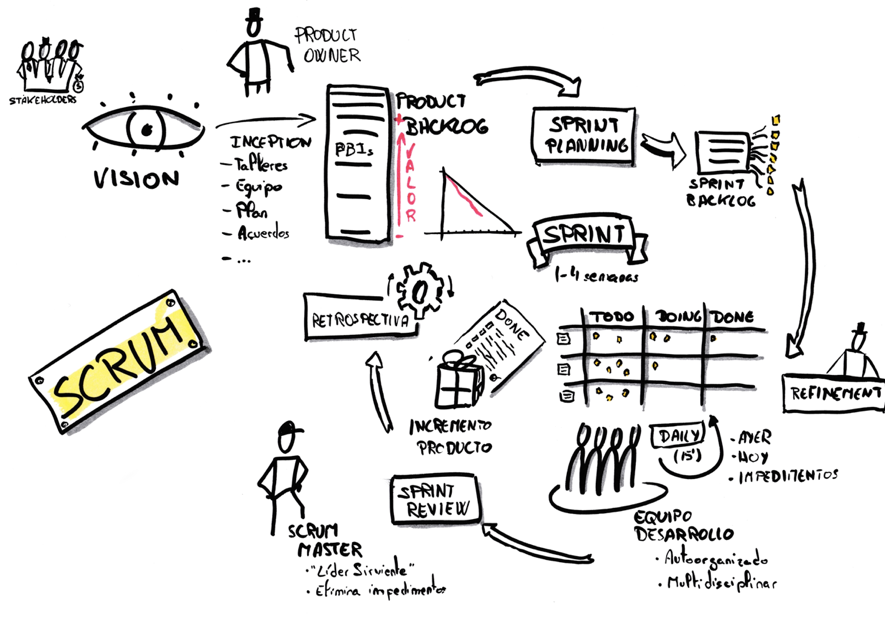 STAKEHOLDERS
PRODUCT
OWNER
VISION
INCEPTION
- Talleres
- Equipo
- Plan
- Acuerdos
- ...
PBIs
PRODUCT
BACKLOG
+
VALOR
-
SPRINT
PLANNING
SPRINT
BACKLOG
SPRINT
1-4 semanas
RETROSPECTIVA
DONE
SCRUM
TODO
DOING
DONE
REFINEMENT
INCREMENTO
PRODUCTO
DAILY
(15')
- AYER
- HOY
- IMPEDIMENTOS
SPRINT
REVIEW
EQUIPO
DESARROLLO
• Autoorganizado
• Multidisciplinar
SCRUM
MASTER
• "Líder Sirviente"
• Elimina impedimentos